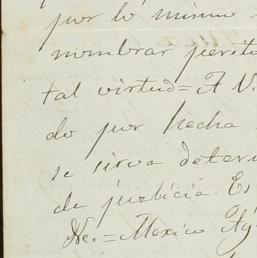 por lo mismo
nombrar perito
tal virtud = A V.
do por hecha
se sirva deter
de justicia. Es
= Mexico